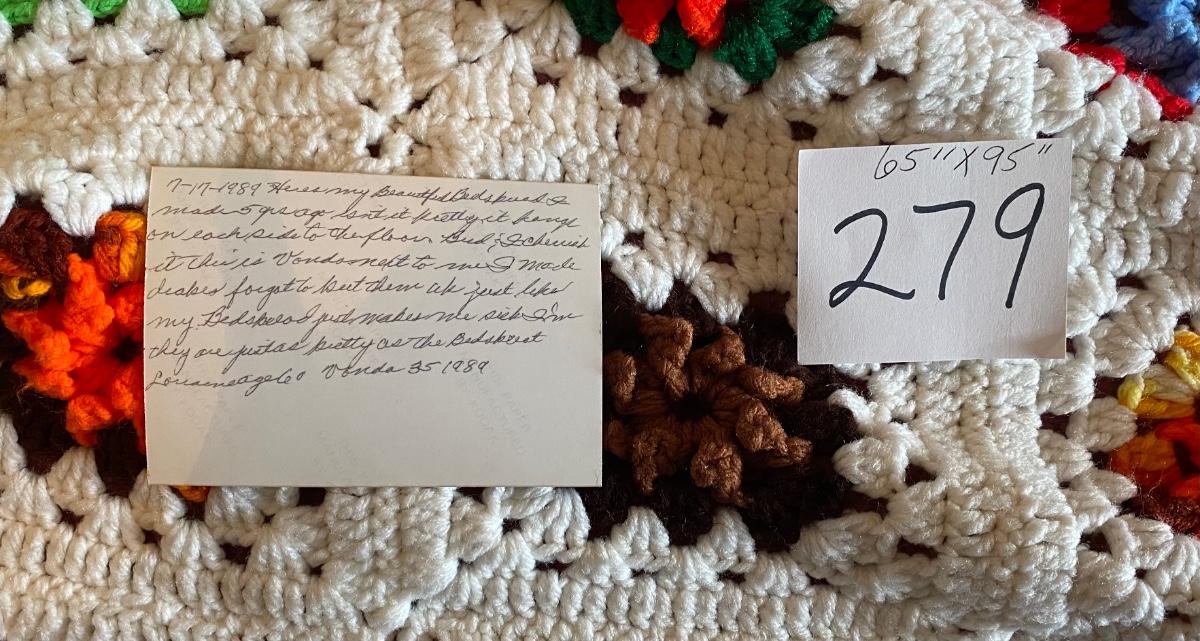 7-17-1989 Heres my Beautiful Bedspread I
made 5 yrs ago isnt it pretty it hangs
on each side to the floor Bud & I cherish
it this is Vonda next to me I made
drapes forgot to put them up just like
my Bedspread just makes me sick I'm
they are just as pretty as the Bedspread
Lorraine age 60 Vonda 35 1989
65" X 95"
279